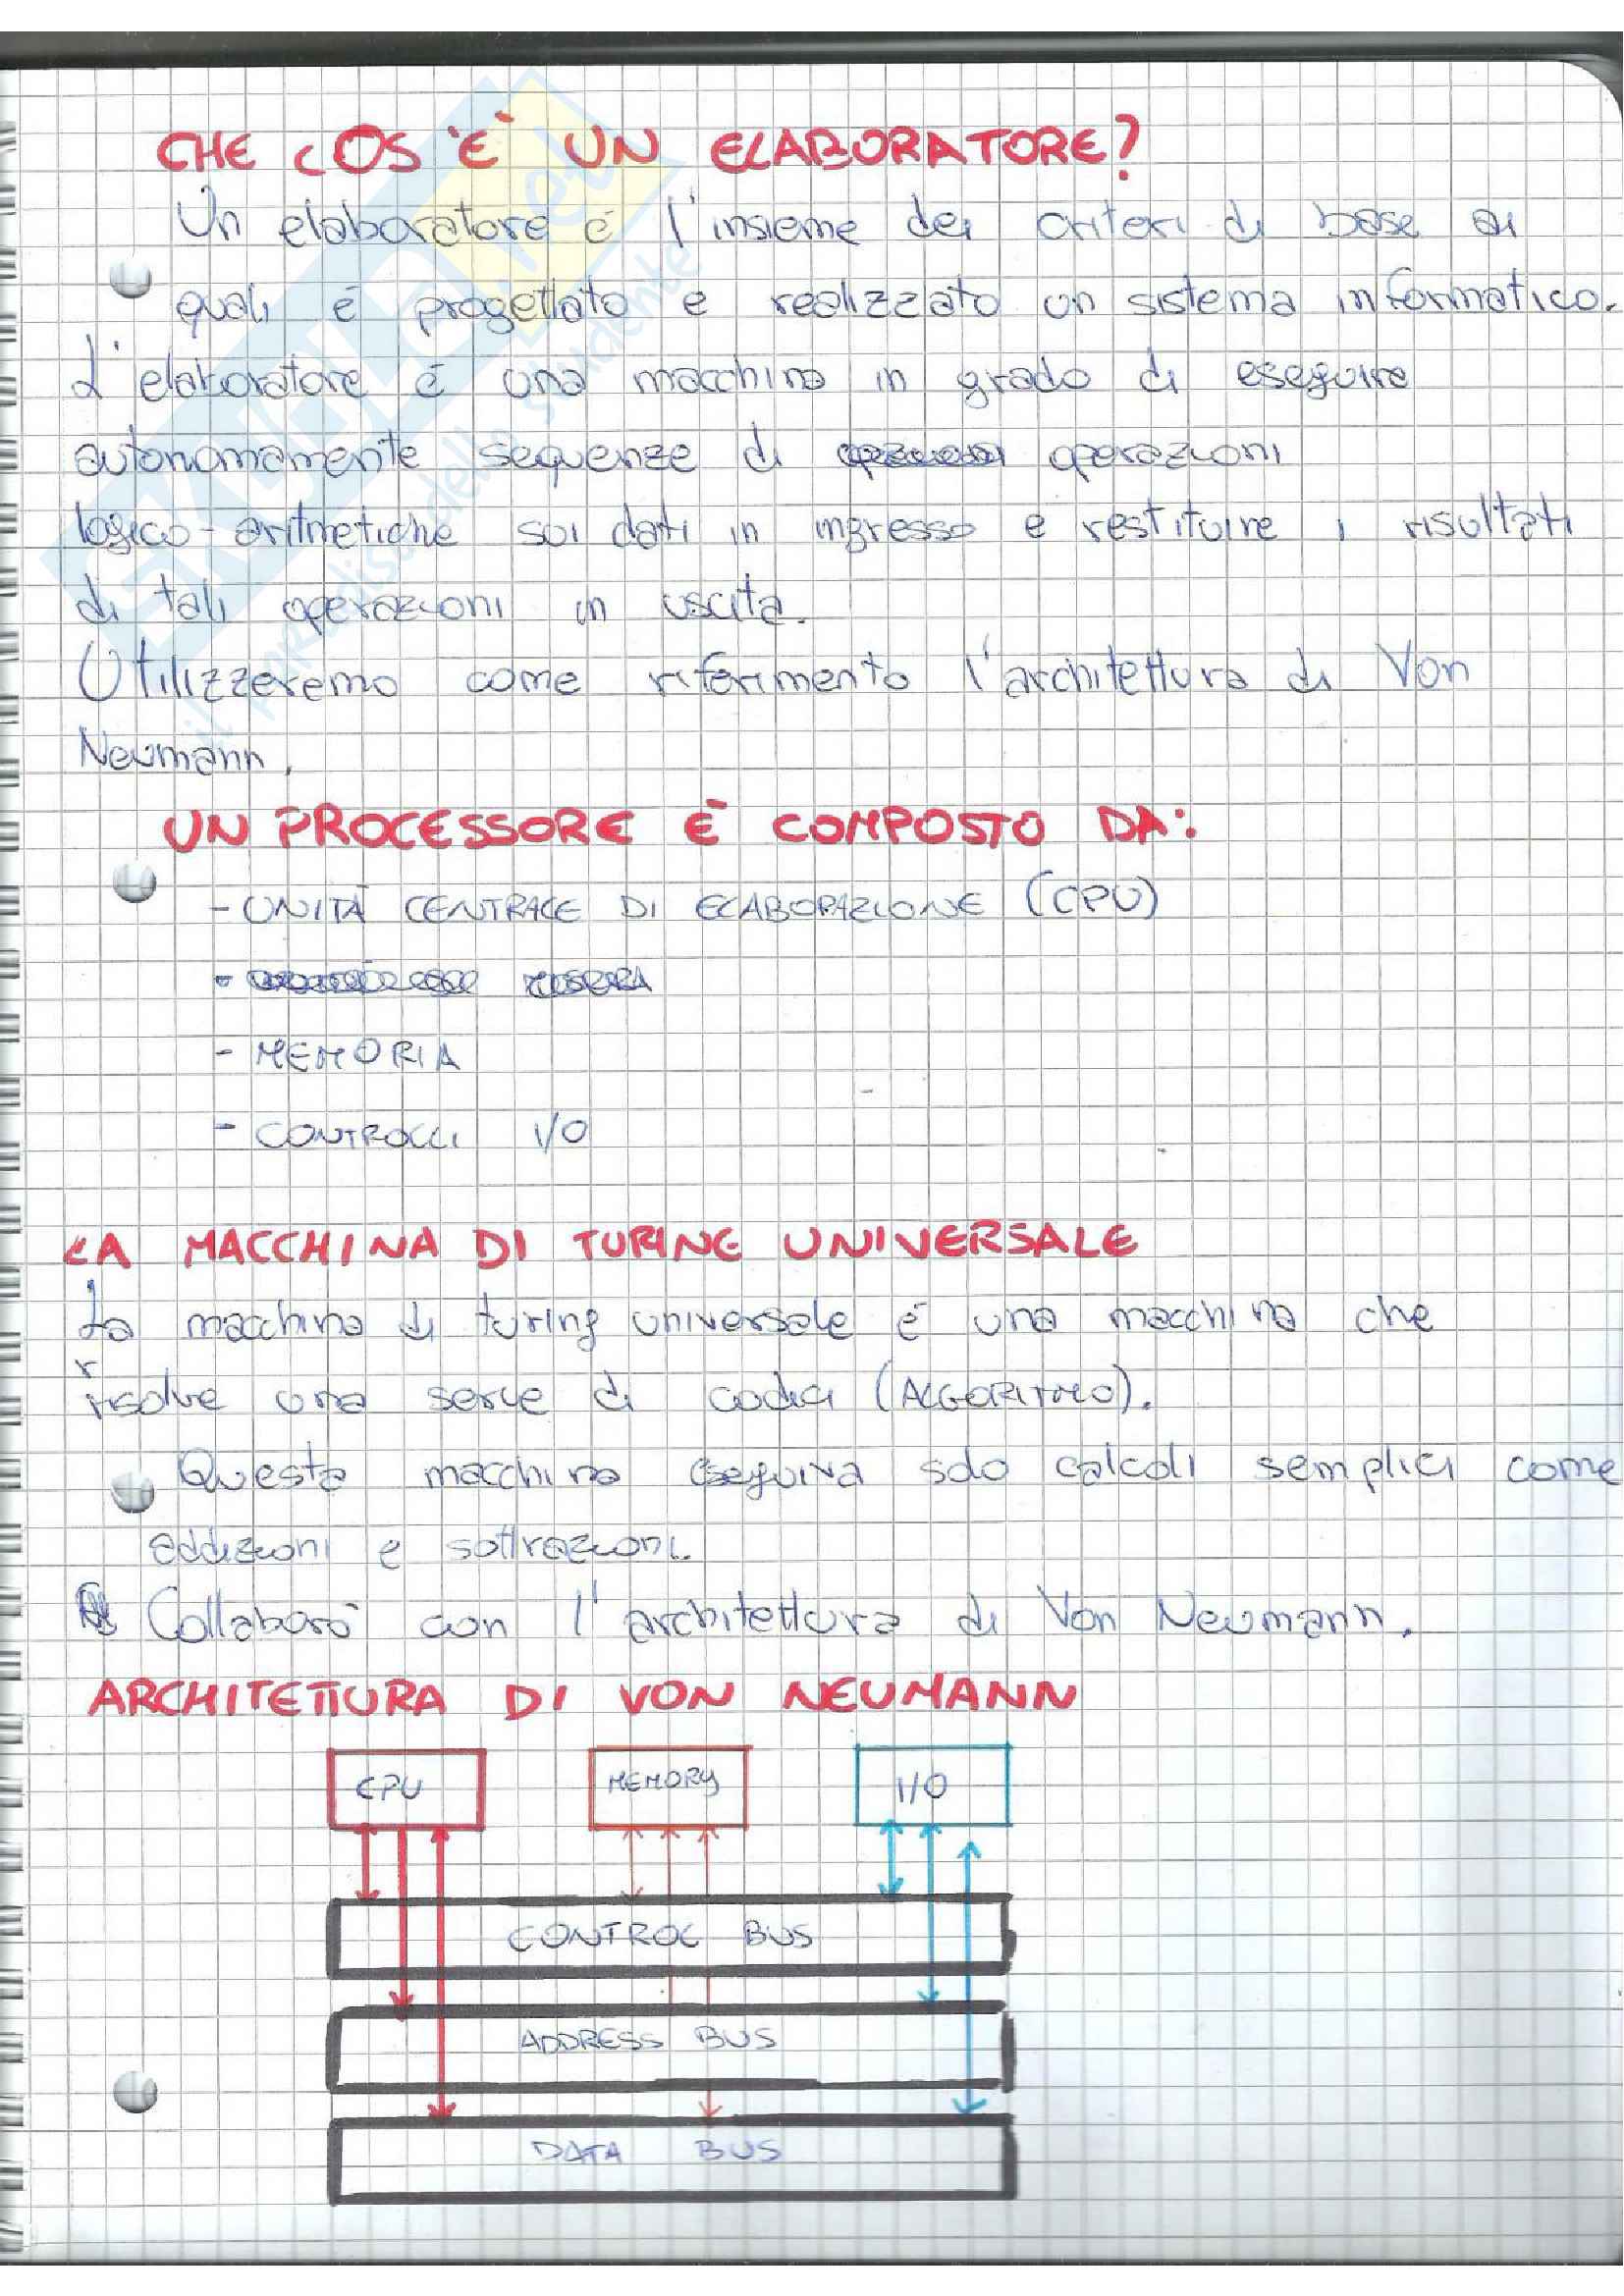 CHE COS'E' UN ELABORATORE?
Un elaboratore é l'insieme dei criteri di base ai
quali é progettato e realizzato un sistema informatico.
L'elaboratore é una macchina in grado di eseguire
autonomamente sequenze di operazioni
logico-aritmetiche sui dati in ingresso e restituire i risultati
di tali operazioni in uscita.
Utilizzeremo come riferimento l'architettura di Von
Neumann.
UN PROCESSORE È COMPOSTO DA:
- UNITÀ CENTRALE DI ELABORAZIONE (CPU)
-
- MEMORIA
- CONTROLLI I/O
LA MACCHINA DI TURING UNIVERSALE
La macchina di turing universale é una macchina che
risolve una serie di codici (ALGORITMO).
Questa macchina eseguiva solo calcoli semplici come
addizioni e sottrazioni.
Collaborò con l'architettura di Von Neumann.
ARCHITETTURA DI VON NEUMANN
CPU MEMORY I/O
CONTROL BUS
ADDRESS BUS
DATA BUS
il paradiso dello studente